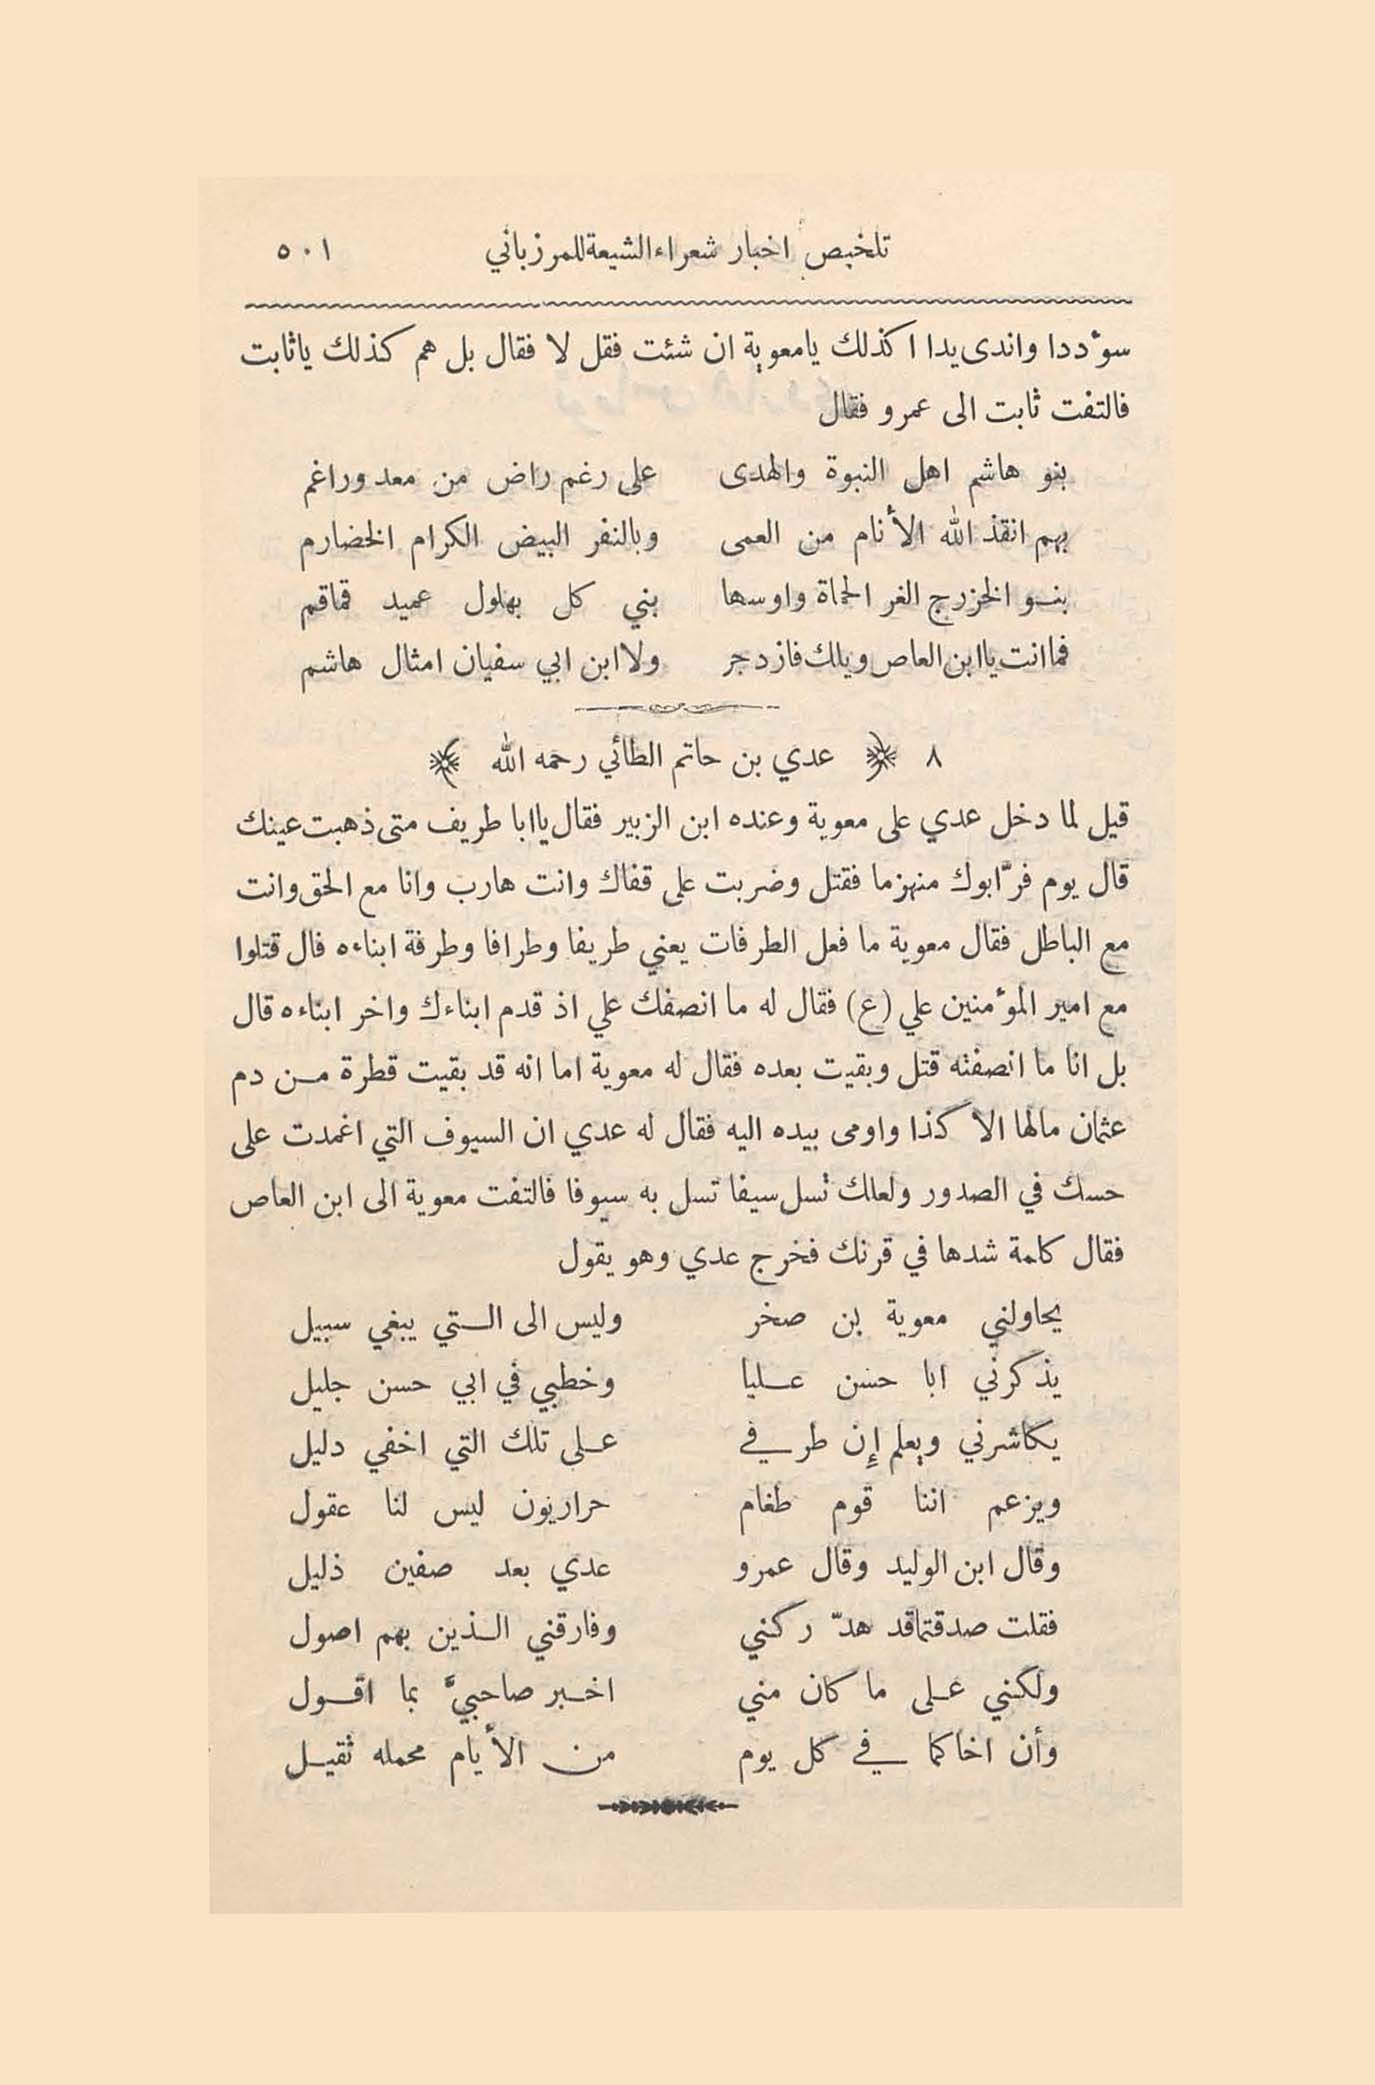 تلخيص اخبار شعراء الشيعة للمرزباني ٥٠١
سوٴددا واندى يدا ا كذلك يا معوية ان شئت فقل لا فقال بل هم كذلك يا ثابت
فالتفت ثابت الى عمرو فقال
بنو هاشم اهل النبوة والهدى على رغم راض من معد وراغم
بهم انقذ الله الأنام من العمى وبالنفر البيض الكرام الخضارم
بنو الخزرج الغر الحماة واوسها بني كل بهلول عميد قماقم
فما انت يا ابن العاص ويلك فازدجر ولا ابن ابي سفيان امثال هاشم
٨ ﴿ عدي بن حاتم الطائي رحمه الله ﴾
قيل لما دخل عدي على معوية وعنده ابن الزبير فقال يا ابا طريف متى ذهبت عينك
قال يوم فرَّ ابوك منهزما فقتل وضربت على قفاك وانت هارب وانا مع الحق وانت
مع الباطل فقال معوية ما فعل الطرفات يعني طريفا وطرافا وطرفة ابناءه قال قتلوا
مع امير الموٴمنين علي (ع) فقال له ما انصفك علي اذ قدم ابناءك واخر ابناءه قال
بل انا ما انصفته قتل وبقيت بعده فقال له معوية اما انه قد بقيت قطرة من دم
عثمان مالها الا كذا واومى بيده اليه فقال له عدي ان السيوف التي اغمدت على
حسك في الصدور ولعلك تسل سيفا تسل به سيوفا فالتفت معوية الى ابن العاص
فقال كلمة شدها في قرنك فخرج عدي وهو يقول
يحاولني معوية بن صخر وليس الى التي يبغي سبيل
يذكرني ابا حسن عليا وخطبي في ابي حسن جليل
يكاشرني ويعلم إن طرفي على تلك التي اخفي دليل
ويزعم اننا قوم طغام حراريون ليس لنا عقول
وقال ابن الوليد وقال عمرو عدي بعد صفين ذليل
فقلت صدقتما قد هدّ ركني وفارقني الذين بهم اصول
ولكني على ما كان مني اخبر صاحبيَّ بما اقول
وأن اخاكما في كل يوم من الأيام محمله ثقيل